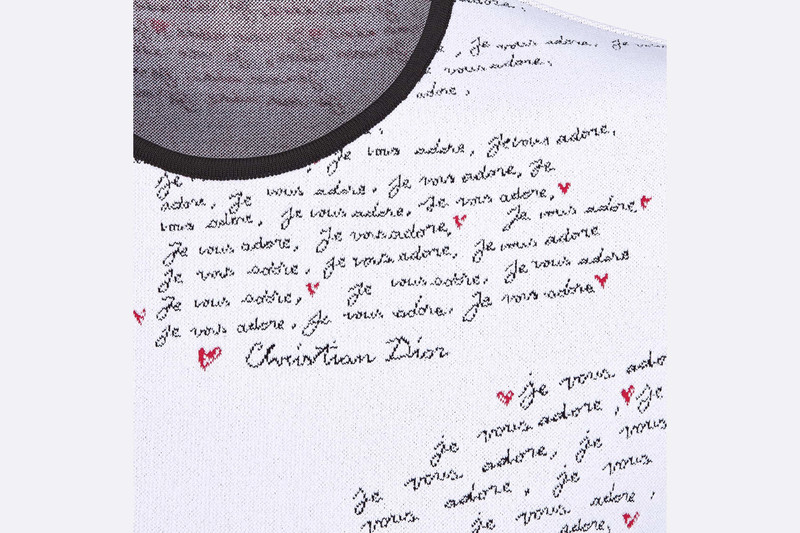 adore.
, Je vous adore. Je vous
vous adore.
adore,
Je vous adore, Je vous adore,
Je
adore, Je vous adore. Je vous adore, Je
vous adore, Je vous adore, Je vous adore,
Je vous adore, Je vous adore, Je vous adore,
Je vous adore, Je vous adore, Je vous adore
Je vous adore, Je vous adore, Je vous adore
Je vous adore, Je vous adore, Je vous adore
Christian Dior
Je vous ado
je vous adore, Je
Je vous adore, je vous
vous adore, je vous
je vous adore,
adore,